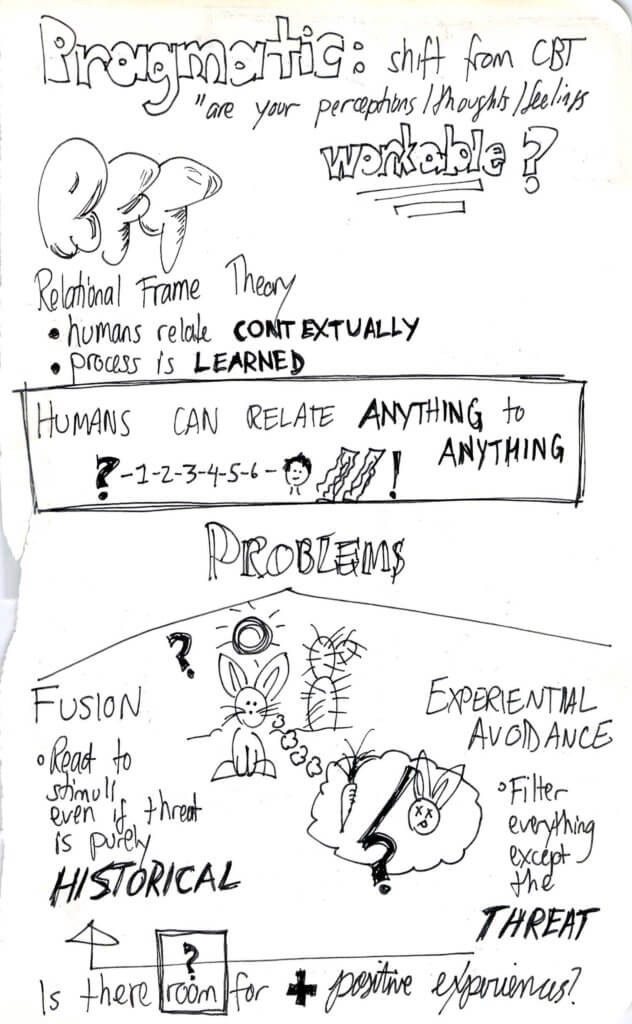 Pragmatic: shift from CBT
"are your perceptions/thoughts/feelings
workable?
RFT
Relational Frame Theory
• humans relate CONTEXTUALLY
• process is LEARNED
HUMANS CAN RELATE ANYTHING to
ANYTHING
? -1-2-3-4-5-6- !
PROBLEMS
?
FUSION
• React to
stimuli
even if threat
is purely
HISTORICAL
?
EXPERIENTIAL
AVOIDANCE
• Filter
everything
except
the
THREAT
?
Is there room for + positive experiences?